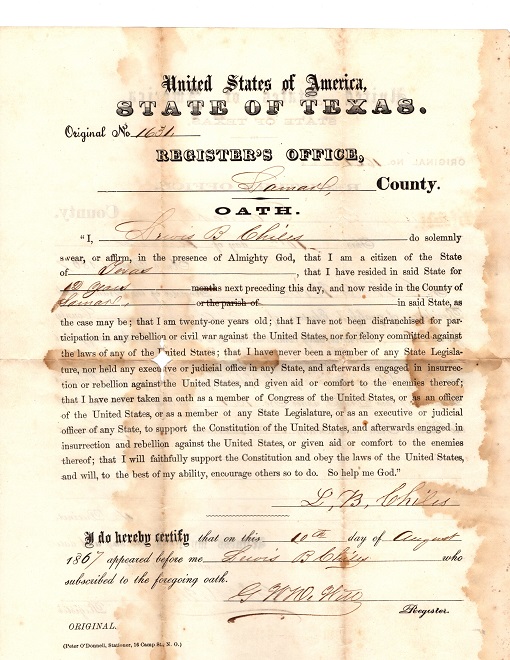 United States of America,
STATE OF TEXAS.
Original No 1631
REGISTER'S OFFICE,
Lamar, County.
OATH.
"I, Lewis B Chiles do solemnly
swear, or affirm, in the presence of Almighty God, that I am a citizen of the State
of Texas, that I have resided in said State for
months next preceding this day, and now reside in the County of
Lamar, or the parish of in said State, as
the case may be; that I am twenty-one years old; that I have not been disfranchised for par-
ticipation in any rebellion or civil war against the United States, nor for felony committed against
the laws of any of the United States; that I have never been a member of any State Legisla-
ture, nor held any executive or judicial office in any State, and afterwards engaged in insurrec-
tion or rebellion against the United States, and given aid or comfort to the enemies thereof;
that I have never taken an oath as a member of Congress of the United States, or as an officer
of the United States, or as a member of any State Legislature, or as an executive or judicial
officer of any State, to support the Constitution of the United States, and afterwards engaged in
insurrection and rebellion against the United States, or given aid or comfort to the enemies
thereof; that I will faithfully support the Constitution and obey the laws of the United States,
and will, to the best of my ability, encourage others so to do. So help me God."
L. B. Chiles
I do hereby certify that on this 10th day of August
1867 appeared before me Lewis B Chiles who
subscribed to the foregoing oath.
Register.
ORIGINAL.
(Peter O'Donnell, Stationer, 16 Camp St., N. O.)